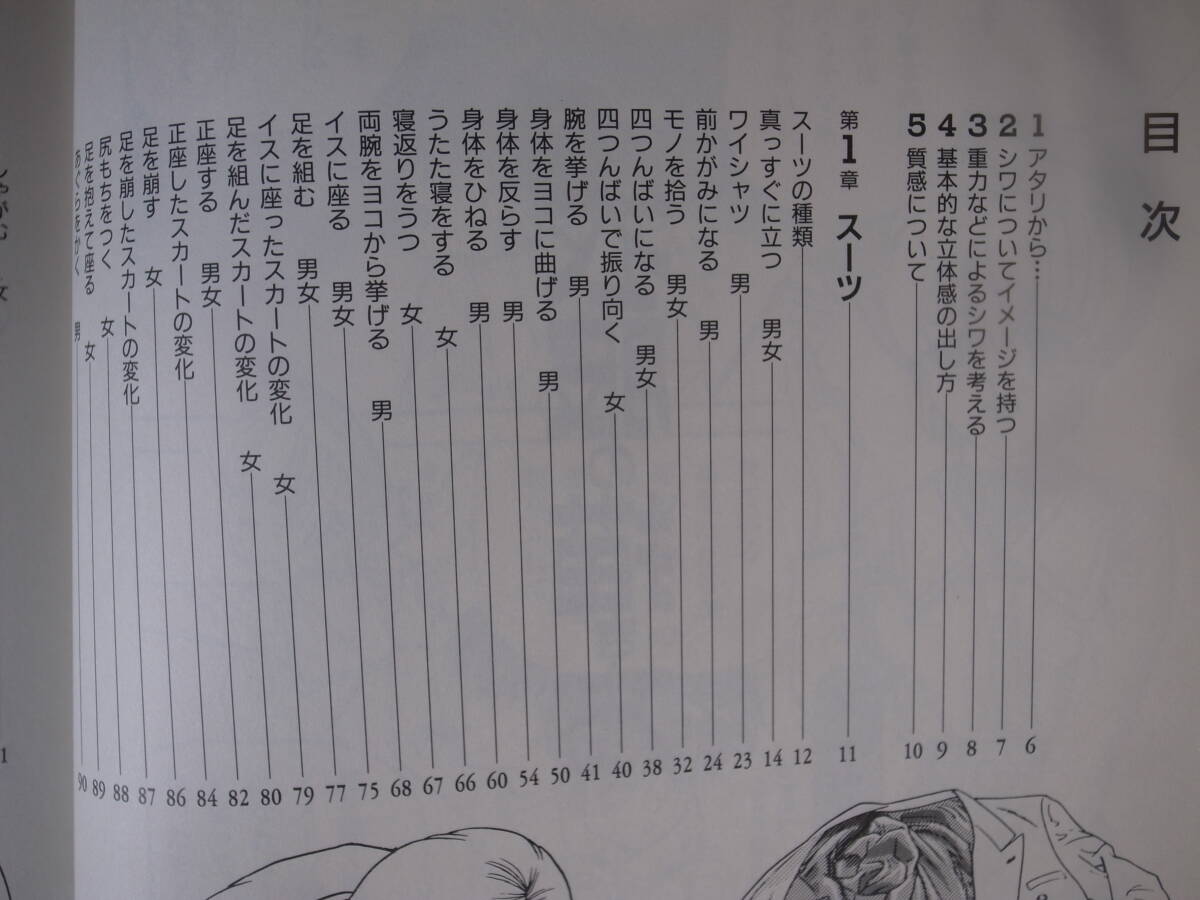 目次
1 アタリから… 6
2 シワについてイメージを持つ 7
3 重力などによるシワを考える 8
4 基本的な立体感の出し方 9
5 質感について 10
第1章 スーツ 11
スーツの種類 12
真っすぐに立つ 男女 14
ワイシャツ 男 23
前かがみになる 男 24
モノを拾う 男女 32
四つんばいになる 男女 38
四つんばいで振り向く 女 40
腕を挙げる 男 41
身体をヨコに曲げる 男 50
身体を反らす 男 54
身体をひねる 男 60
うたた寝をする 女 66
寝返りをうつ 女 67
両腕をヨコから挙げる 男 68
イスに座る 男女 75
足を組む 男女 77
イスに座ったスカートの変化 女 79
足を組んだスカートの変化 女 80
正座する 男女 82
正座したスカートの変化 84
足を崩す 女 86
足を崩したスカートの変化 87
尻もちをつく 女 88
足を抱えて座る 女 89
あぐらをかく 男 90
しゃがむ 女
1